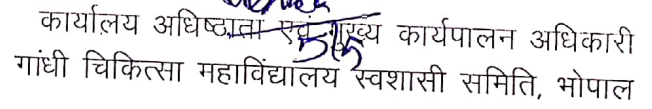 कार्यालय अधिष्ठाता एवं मुख्य कार्यपालन अधिकारी
गांधी चिकित्सा महाविद्यालय स्वशासी समिति, भोपाल